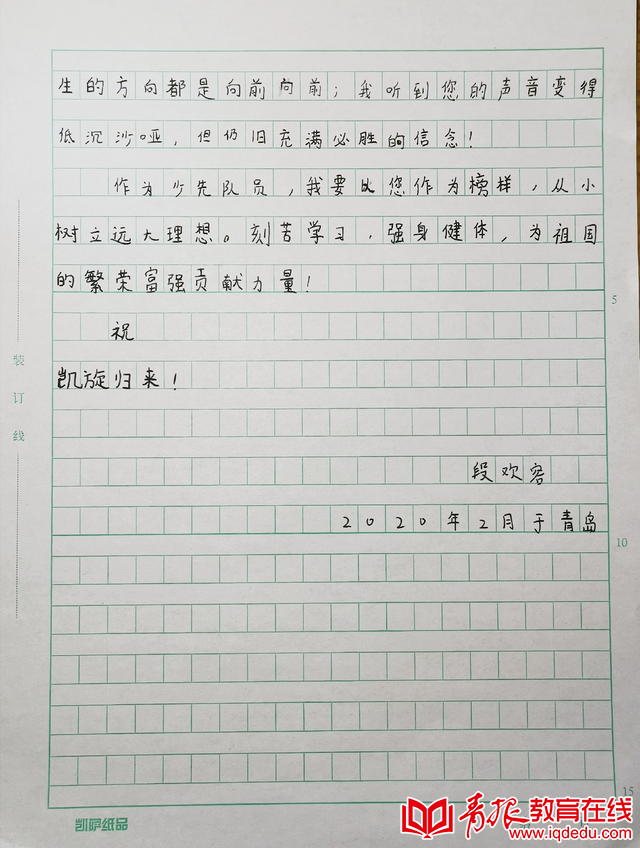 生的方向都是向前向前；我听到您的声音变得
低沉沙哑，但仍旧充满必胜的信念！
作为少先队员，我要以您作为榜样，从小
树立远大理想。刻苦学习，强身健体，为祖国
的繁荣富强贡献力量！
5
祝
装订线
凯旋归来！
段欢容
2020年2月于青岛
10
15
凯萨纸品
青报教育在线
www.iqdedu.com